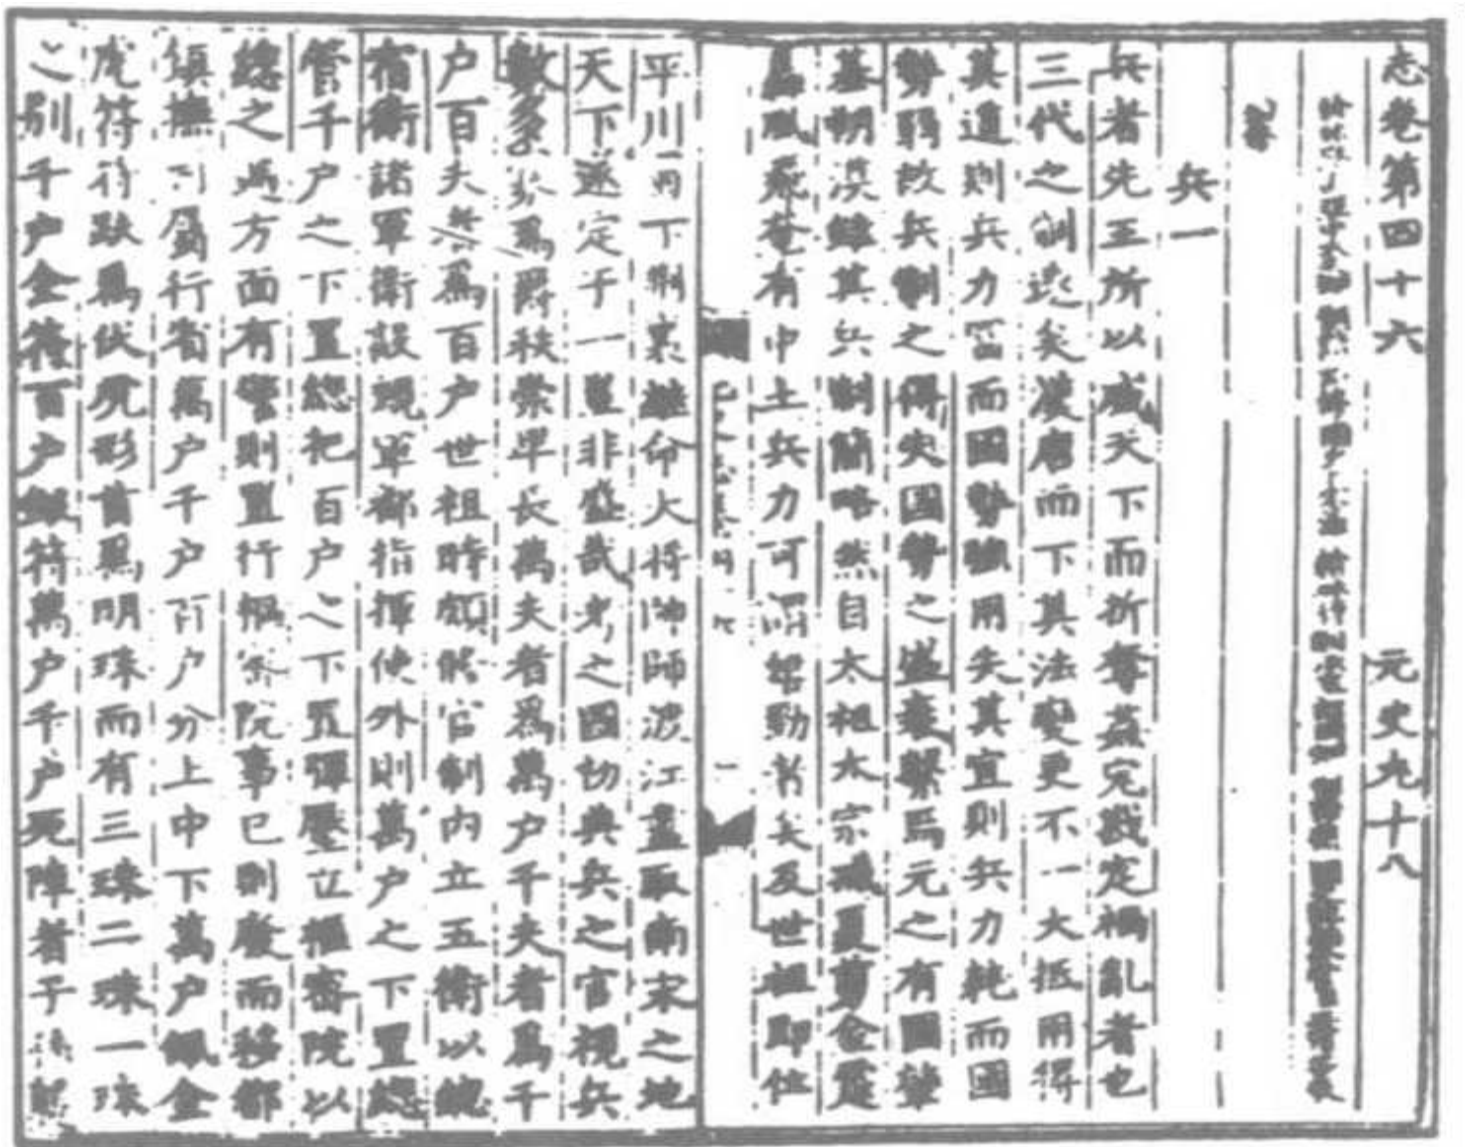 志卷第四十六 元史九十八
兵一
兵者先王所以威天下而折奪姦宄戡定禍亂者也
三代之制遠矣漢唐而下其法變更不一大抵用得
其道則兵力富而國勢強用失其宜則兵力耗而國
勢弱故兵制之得失國勢之盛衰繫焉元之有國肇
基朔漠雖其兵制簡略然自太祖太宗滅夏剪金霆
轟風飛奄有中土兵力可謂雄勁者矣及世祖即位
平川蜀下荊襄繼命大將帥師渡江盡取南宋之地
天下遂定于一豈非盛哉考之國初典兵之官視兵
數多寡爲爵秩崇卑長萬夫者爲萬户千夫者爲千
户百夫者爲百户世祖時頗脩官制內立五衛以總
宿衛諸軍衛設親軍都指揮使外則萬户之下置總
管千户之下置總把百户之下置彈壓立樞密院以
總之遇方面有警則置行樞密院事已則廢而移都
鎮撫司屬行省萬户千户百户分上中下萬户佩金
虎符符趺爲伏虎形首爲明珠而有三珠二珠一珠
之別千户金符百户銀符萬户千户死陣者子孫襲